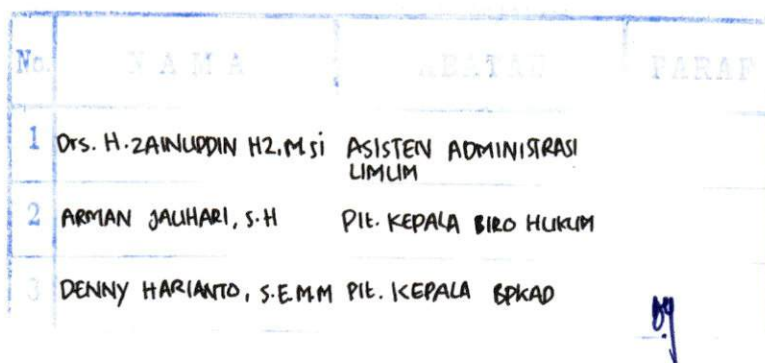 No. NAMA JABATAN PARAF
1 Drs. H. ZAINUDDIN HZ, M.si ASISTEN ADMINISTRASI
UMUM
2 ARMAN JAUHARI, S.H Plt. KEPALA BIRO HUKUM
3 DENNY HARIANTO, S.E.M.M Plt. KEPALA BPKAD